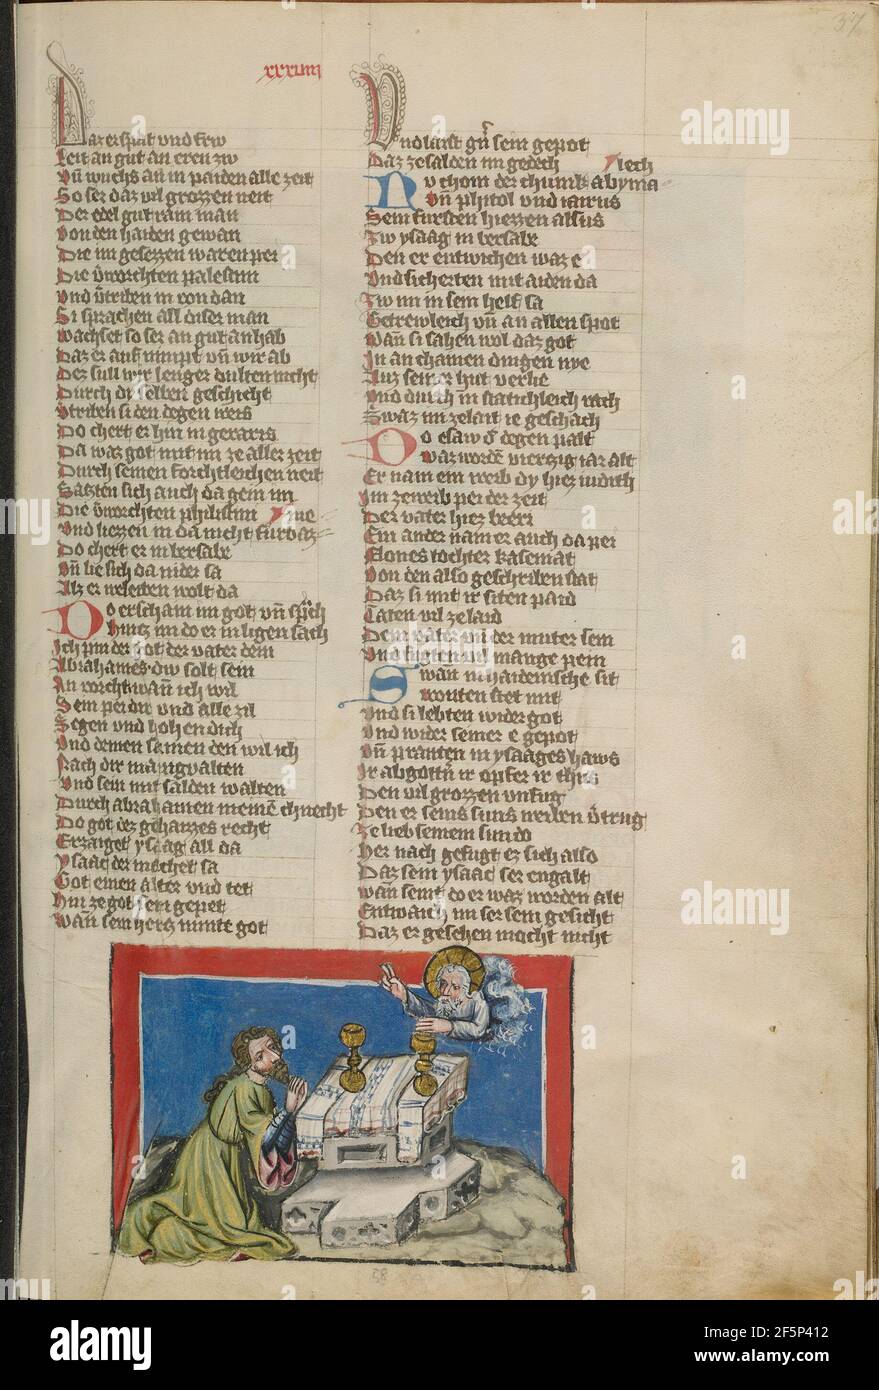 37
xxxviiij
Daz er spat vnd frw
Leit an gut an eren zw
Vn̄ wuchs an in paiden alle zeit
So ser daz vil grozzen neit
Der edel gut rain man
Von den haiden gewan
Die im gesezzen waren pei
Die v̓worchten palestini
Vnd v̓triben in von dan
Si sprachen all diser man
Wachset so ser an gut an hab
Daz er auf nimpt vn̄ wir ab
Dez sull wir lenger dulten nicht
Durch dy selben geschicht
V̓triben si den degen weis
Do chert er hin in geraris
Da waz got mit im ze aller zeit
Durch seinen forchtleichen neit
Satzten sich auch da gein im
Die v̓worchten philistini
Vnd liezzen in da nicht furbaz
Do chert er in bersabe
Vn̄ lie sich da nider sa
Alz er beleiben wolt da
Do erschain im got vn̄ sp̄ch
Hintz im do er in ligen sach
Ich pin der got der vater dein
Abrahames diw solt sein
An vorcht wān ich wil
Sein pei dir vnd alle zil
Segen vnd hohen dich
Vnd deinen samen den wil ich
Nach dir manigualten
Vnd sein mit sälden walten
Durch abrahamen meinē chnecht
Do got dez gehaizzes recht
Erzaiget ysaag all da
Ysaac der machet sa
Got einen alter vnd tet
Hin ze got sein gepet
Wān sein hertz minte got
Vnd laist gn̄ sein gepot
Daz ze salden im gedech
lech
Nv chom der chunik abyma
Vn̄ phitol vnd iairus
Sein fursten hiezzen alsus
Zw ysaag in bersabe
Den er entwichen waz e
Vnd sicherten mit aiden da
Zw im in sein helf sa
Getrewleich vn̄ an allen spot
Wān si sahen wol daz got
In an chainen dingen nye
Auz seiner hut verlie
Vnd durch in statichleich rach
Swaz im ze lait ie geschach
Do esaw d̓ degen palt
Waz wordē vierzig iar alt
Er nam ein weib dy hiez iudith
Im ze weib pei der zeit
Der vater hiez beeri
Ein ander nam er auch da pei
Elones tochter basemat
Von den also geschriben stat
Daz si mit ir siten paid
Taten vil ze laid
Dem vater vn̄ der muter sein
Vnd fugten vil mange pein
Wān in haidenische sit
Wonten stet mit
Vnd si lebten wider got
Vnd wider seiner e gepot
Vn̄ pranten in ysaages haws
Den vil grozzen vnfug
Den er seins suns weiben v̓trug
Ze lieb seinem sun do
Her nach gefugt ez sich also
Daz sein ysaac ser engalt
Wān seint do er waz worden alt
Entwaich im ser sein gesicht
Daz er gesehen mocht nicht
58
alamy
Image ID: 2F5P412
www.alamy.com